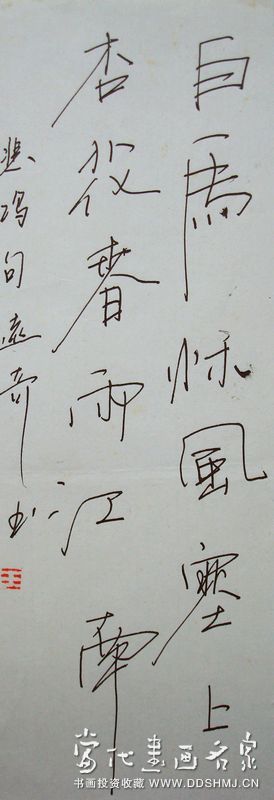 白馬秋風塞上
杏花春雨江南
悲鸿句
当代书画名家
书画投资收藏 WWW.DDSHMJ.CN